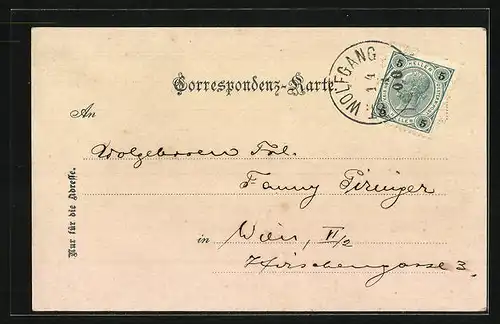 Correspondenz-Karte.
WOLFGANG
14
00
5 HELLER 5
5 HELLER 5
An
Wolgeboren Frl.
Fanny Piringer
in Wien, VI/2
Hirschengasse 3.
Nur für die Adresse.